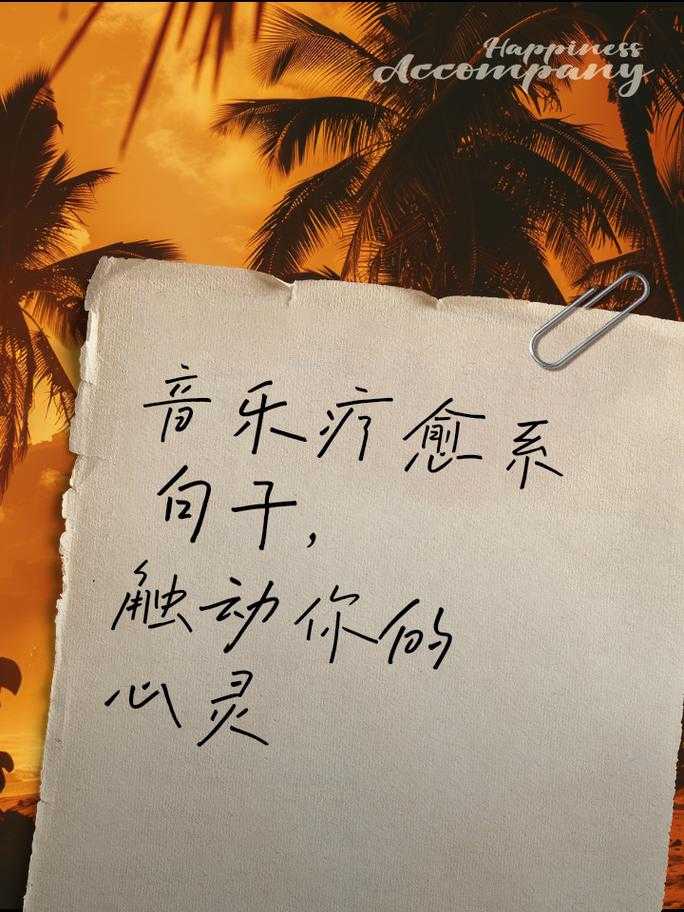 Happiness
Accompany
音乐疗愈系
句子，
触动你的
心灵